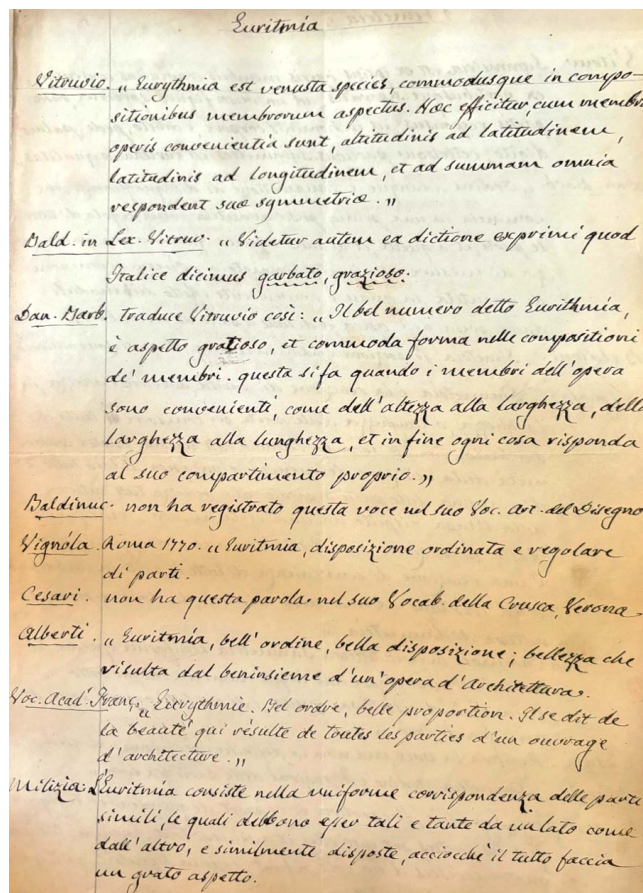 Euritmia
Vitruvio. „ Eurythmia est venusta species, commodusque in compo-
sitionibus membrorum aspectus. Hæc efficitur, cum membra
operis convenientia sunt, altitudinis ad latitudinem,
latitudinis ad longitudinem, et ad summam omnia
respondent suæ symmetriæ. „
Bald. in Lex. Vitruv. „ Videtur autem ea dictione exprimi quod
Italice dicimus garbato, grazioso.
Dan. Barb. traduce Vitruvio così: „ Il bel numero detto Eurithmia,
è aspetto gratioso, et commoda forma nelle compositioni
de' membri. questa si fa quando i membri dell'opera
sono convenienti, come dell'altezza alla larghezza, della
larghezza alla lunghezza, et in fine ogni cosa risponda
al suo compartimento proprio. „
Baldinuc. non ha registrato questa voce nel suo Voc. Art. del Disegno
Vignóla. Roma 1770. „ Euritmia, disposizione ordinata e regolare
di parti.
Cesari. non ha questa parola nel suo Vocab. della Crusca, Verona
Alberti. „ Euritmía, bell'ordine, bella disposizione; bellezza che
risulta dal beninsieme d'un'opera d'Architettura.
Voc. Acad. Franç. „ Eurythmie. Bel ordre, belle proportion. Il se dit de
la beauté qui résulte de toutes les parties d'un ouvrage
d'architecture. „
Milizia. L'Euritmía consiste nella uniforme corrispondenza delle parti
simili, le quali debbono esser tali e tante da un lato come
dall'altro, e similmente disposte, acciocchè il tutto faccia
un grato aspetto.